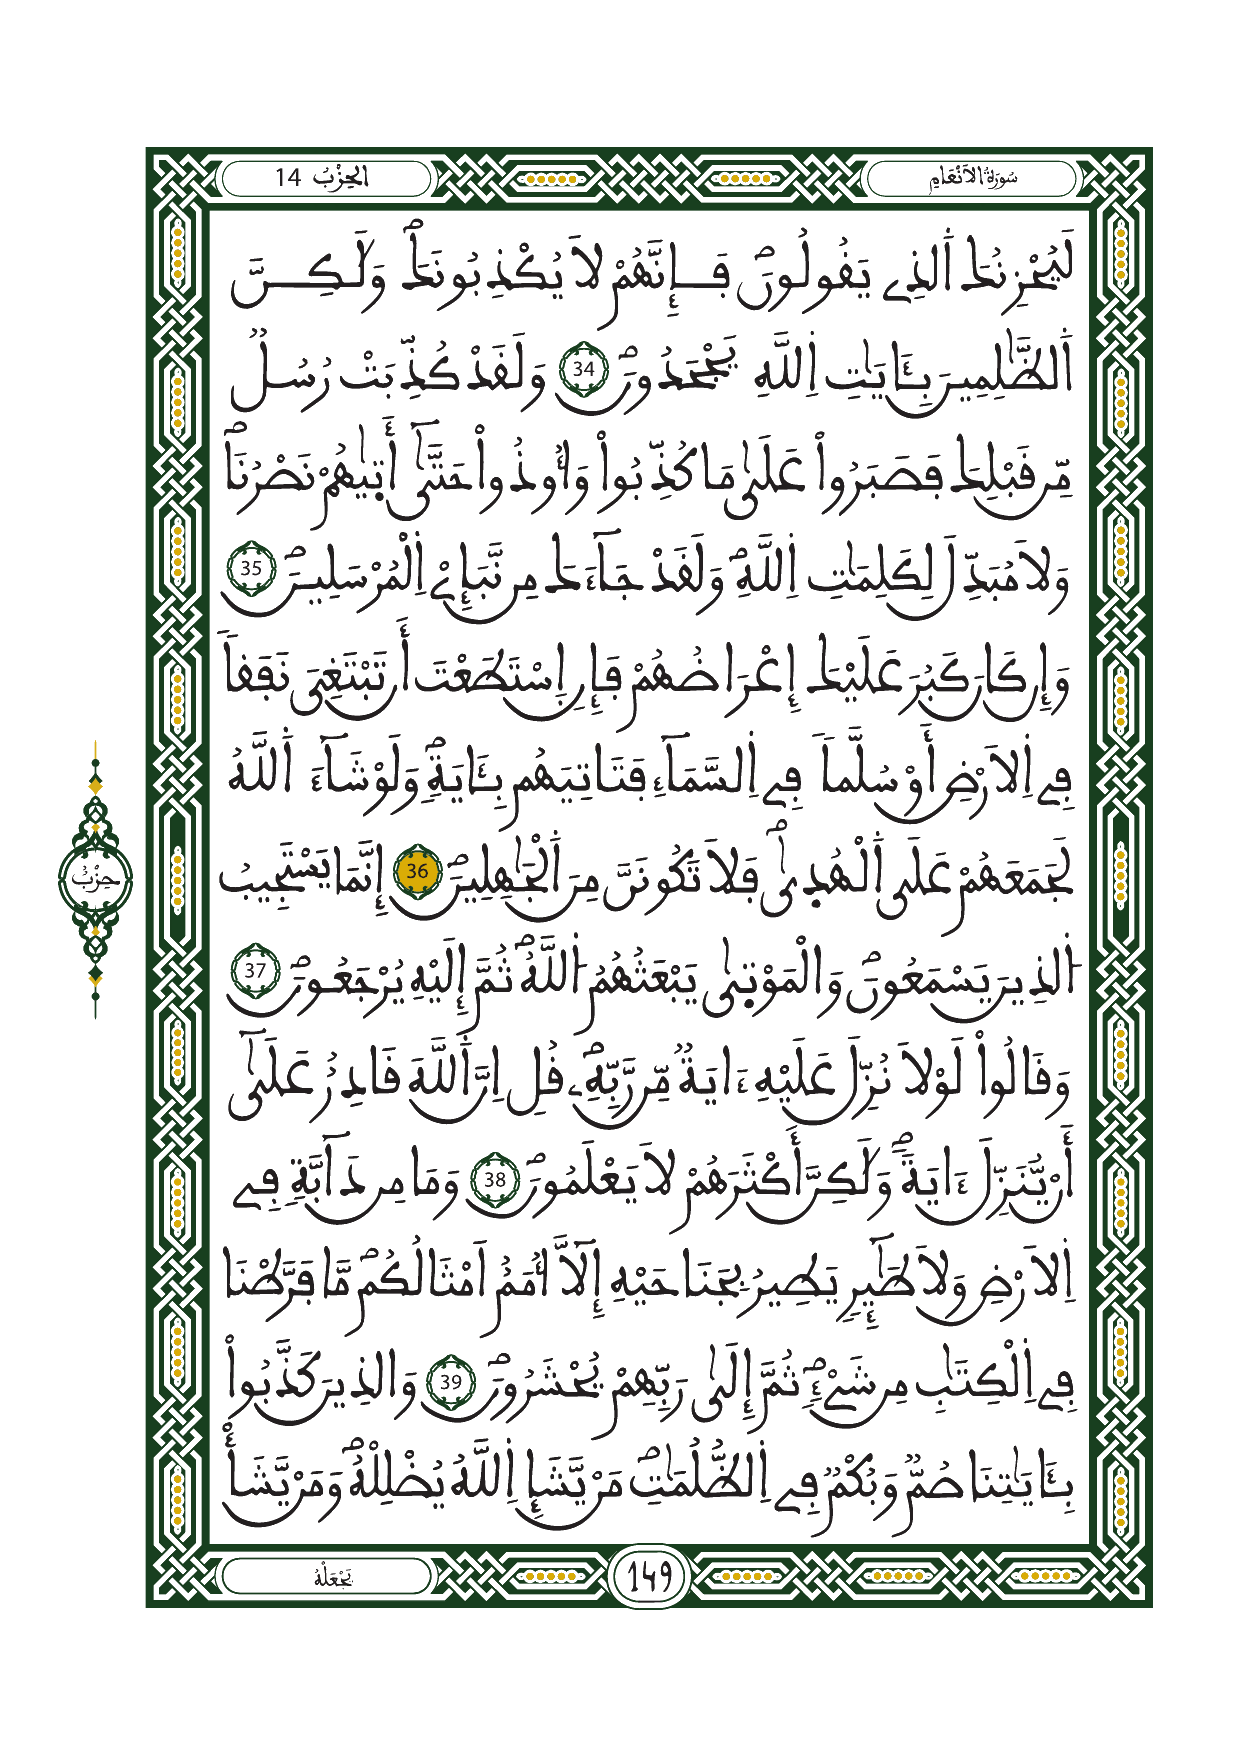 سُورَةُ الَانْعَامِ
الحِزْبُ 14
لَيُحْزِنُكَ اَ۬لذِے يَقُولُونَۖ فَإِنَّهُمْ لَا يُكْذِبُونَكَۖ وَلَٰكِنَّ
اَ۬لظَّٰلِمِينَ بِـَٔايَٰتِ اِ۬للَّهِ يَجْحَدُونَۖ 34 وَلَقَدْ كُذِّبَتْ رُسُلٞ
مِّن قَبْلِكَ فَصَبَرُواْ عَلَىٰ مَا كُذِّبُواْ وَأُوذُواْ حَتَّىٰٓ أَت۪ىٰهُمْ نَصْرُنَاۖ
وَلَا مُبَدِّلَ لِكَلِمَٰتِ اِ۬للَّهِۖ وَلَقَدْ جَآءَكَ مِن نَّبَإِےْ اِ۬لْمُرْسَلِينَۖ 35
وَإِن كَانَ كَبُرَ عَلَيْكَ إِعْرَاضُهُمْ فَإِنِ اِ۪سْتَطَعْتَ أَن تَبْتَغِيَ نَفَقاٗ
فِے اِ۬لَارْضِ أَوْ سُلَّماٗ فِے اِ۬لسَّمَآءِ فَتَاتِيَهُم بِـَٔايَةٖۖ وَلَوْ شَآءَ اَ۬للَّهُ
لَجَمَعَهُمْ عَلَى اَ۬لْهُد۪ىٰۖ فَلَا تَكُونَنَّ مِنَ اَ۬لْجَٰهِلِينَۖ 36 إِنَّمَا يَسْتَجِيبُ
اُ۬لذِينَ يَسْمَعُونَۖ وَالْمَوْت۪ىٰ يَبْعَثُهُمُ اُ۬للَّهُۖ ثُمَّ إِلَيْهِ يُرْجَعُونَۖ 37
وَقَالُواْ لَوْلَا نُزِّلَ عَلَيْهِ ءَايَةٞ مِّن رَّبِّهِۦۖ قُلِ اِنَّ اَ۬للَّهَ قَادِرٌ عَلَىٰٓ
أَنْ يُّنَزِّلَ ءَايَةٗۖ وَلَٰكِنَّ أَكْثَرَهُمْ لَا يَعْلَمُونَۖ 38 وَمَا مِن دَآبَّةٖ فِے
اِ۬لَارْضِ وَلَا طَٰٓئِرٖ يَطِيرُ بِجَنَاحَيْهِ إِلَّآ أُمَمٌ اَمْثَالُكُمۖ مَّا فَرَّطْنَا
فِے اِ۬لْكِتَٰبِ مِن شَےْءٖۖ ثُمَّ إِلَىٰ رَبِّهِمْ يُحْشَرُونَۖ 39 وَالذِينَ كَذَّبُواْ
بِـَٔايَٰتِنَا صُمّٞ وَبُكْمٞ فِے اِ۬لظُّلُمَٰتِۖ مَنْ يَّشَإِ اِ۬للَّهُ يُضْلِلْهُۖ وَمَنْ يَّشَأْ
حِزْبُ
يَجْعَلْهُ
149